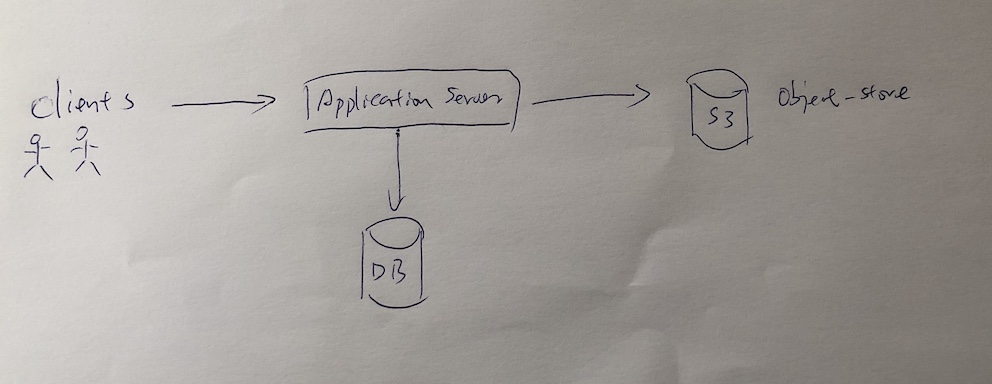 clients
Application Server
S3
Object-store
DB